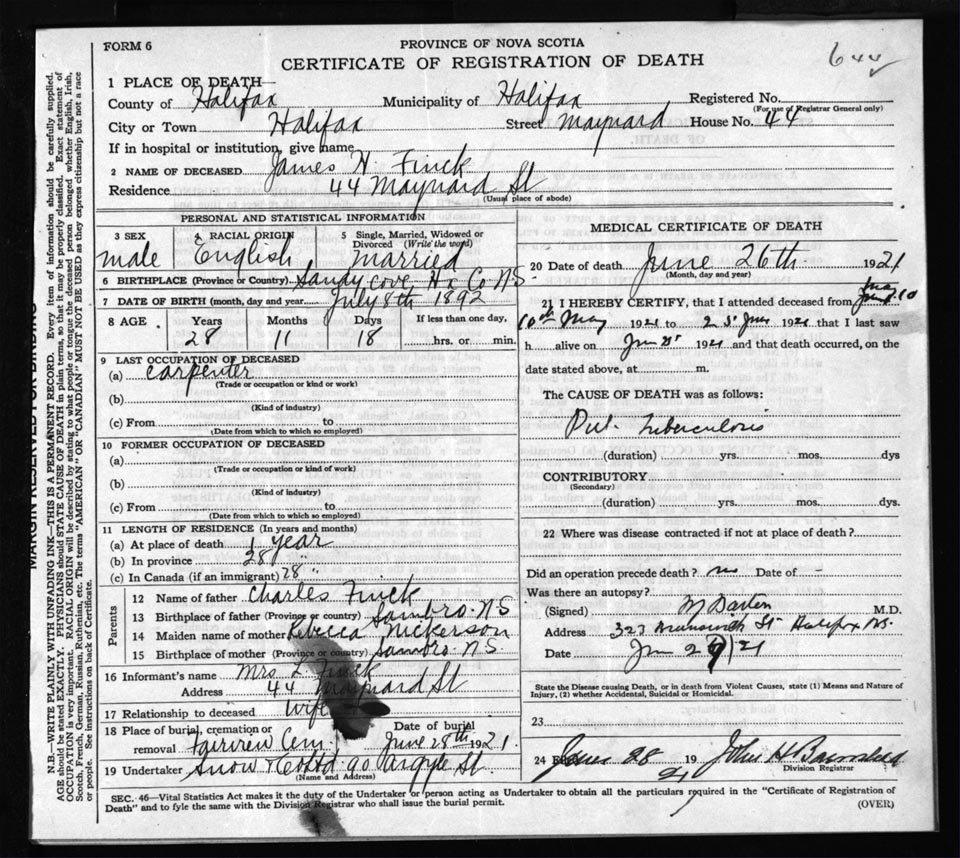 FORM 6
PROVINCE OF NOVA SCOTIA
CERTIFICATE OF REGISTRATION OF DEATH
644
1 PLACE OF DEATH
County of Halifax Municipality of Halifax Registered No.
(For use of Registrar General only)
City or Town Halifax Street Maynard House No. 44
If in hospital or institution, give name
2 NAME OF DECEASED James H. Finck
Residence 44 Maynard St
(Usual place of abode)
PERSONAL AND STATISTICAL INFORMATION
3 SEX male
4 RACIAL ORIGIN English
5 Single, Married, Widowed or Divorced (Write the word) married
6 BIRTHPLACE (Province or Country) Sandy cove Hx Co N.S.
7 DATE OF BIRTH (month, day and year) July 8th 1892
8 AGE Years 28 Months 11 Days 18 If less than one day, hrs. or min.
9 LAST OCCUPATION OF DECEASED
(a) carpenter
(Trade or occupation or kind or work)
(b)
(Kind of industry)
(c) From to
(Date from which to which so employed)
10 FORMER OCCUPATION OF DECEASED
(a)
(Trade or occupation or kind of work)
(b)
(Kind of industry)
(c) From to
(Date from which to which so employed)
11 LENGTH OF RESIDENCE (In years and months)
(a) At place of death 1 year
(b) In province 28 "
(c) In Canada (if an immigrant) 28 "
Parents
12 Name of father Charles Finck
13 Birthplace of father (Province or country) Sambro. N.S
14 Maiden name of mother Rebecca Nickerson
15 Birthplace of mother (Province or country) Sambro. N.S.
16 Informant's name Mrs L. Finck
Address 44 Maynard St
17 Relationship to deceased Wife
18 Place of burial, cremation or removal Fairview Cem. Date of burial June 28th 1921.
19 Undertaker Snow & Co Ltd 90 Argyle St
(Name and Address)
MEDICAL CERTIFICATE OF DEATH
20 Date of death June 26th 1921
(Month, day and year)
21 I HEREBY CERTIFY, that I attended deceased from
10th May 1921 to 25 June 1921 that I last saw
h alive on 1921 and that death occurred, on the
date stated above, at m.
The CAUSE OF DEATH was as follows:
Pul. Tuberculosis
(duration) yrs. mos. dys
CONTRIBUTORY
(Secondary)
(duration) yrs. mos. dys.
22 Where was disease contracted if not at place of death?
Did an operation precede death? no Date of -
Was there an autopsy?
(Signed) M Barton M.D.
Address 327 Brunswick St Halifax N.S.
Date
State the Disease causing Death, or in death from Violent Causes, state (1) Means and Nature of
Injury, (2) whether Accidental, Suicidal or Homicidal.
23
24 June 28 1921 John H
Division Registrar
SEC. 46—Vital Statistics Act makes it the duty of the Undertaker or person acting as Undertaker to obtain all the particulars required in the "Certificate of Registration of
Death" and to fyle the same with the Division Registrar who shall issue the burial permit.
(OVER)
MARGIN RESERVED FOR BINDING
N.B.—WRITE PLAINLY WITH UNFADING INK—THIS IS A PERMANENT RECORD. Every item of information should be carefully supplied.
AGE should be stated EXACTLY. PHYSICIANS should STATE CAUSE OF DEATH in plain terms, so that it may be properly classified. Exact statement of
OCCUPATION is very important. RACIAL ORIGIN will be described by stating to what people or tongue the deceased person belonged whether English, Irish,
Scotch, French, German, Russian, Ruthenian, etc. The terms "AMERICAN" OR "CANADIAN" MUST NOT BE USED as they express citizenship but not a race
or people. See instructions on back of Certificate.